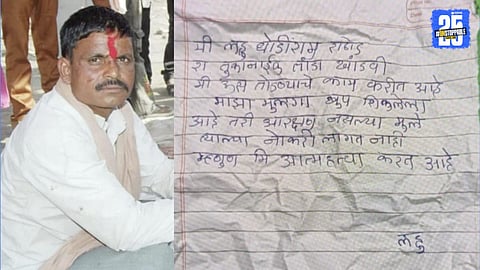 25
#UNSTOPPABLE
मी लहु धोंडीराम राठोड
रा तुकानाईक तांडा खांडवी
मी ऊस तोडण्याचे काम करीत आहे
माझा मुलगा खुप शिकलेला
आहे तरी आरक्षण नसल्या मुले
त्याल्या नोकरी लागत नाही
म्हणुन मि आत्महत्या करत आहे
लहु